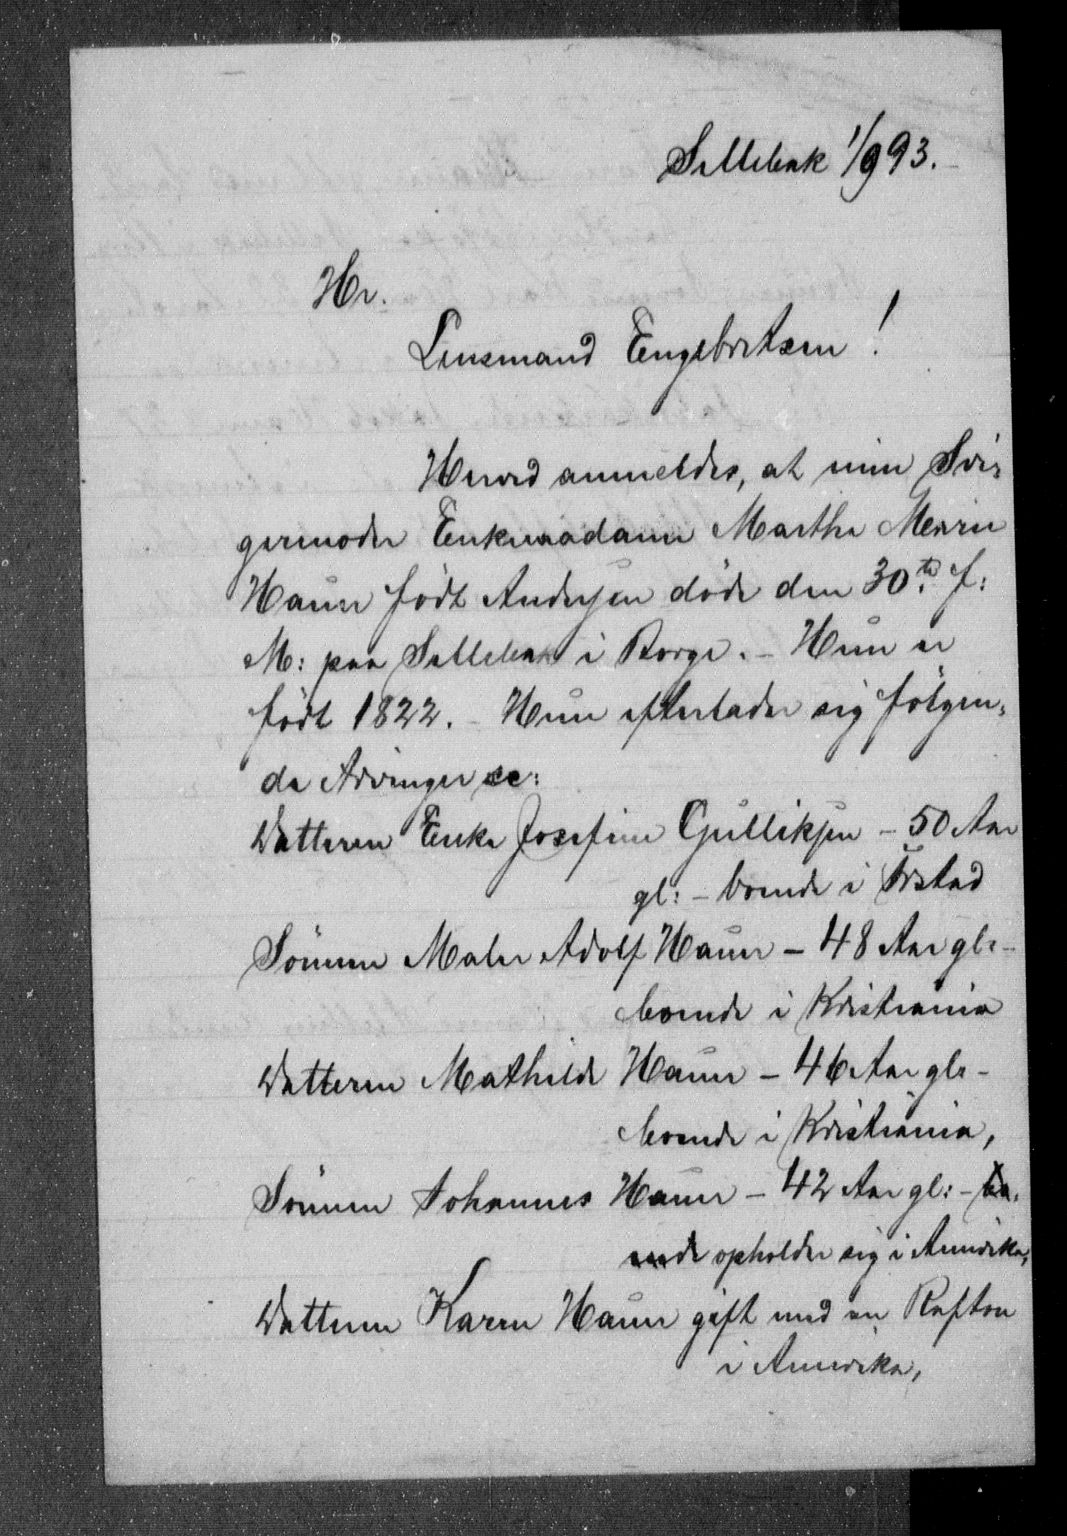 Sellebak 1/9 93.
Hr.
Lensmand Engebretsen!
Herved anmeldes, at min Svi-
germoder Enkemadame Marthe Marie
Haun født Andersen døde den 30te f:
M: paa Sellebak i Borge. - Hun er
født 1822. - Hun efterlader sig følgen-
de Arvinger
Datteren Enke Josefine Gulliksen - 50 Aar
gl: - boende i Ørstad
Sønnen Maler Adolf Haun - 48 Aar gl: -
boende i Kristiania
Datteren Mathilde Haun - 46 Aar gl: -
boende i Kristiania,
Sønnen Johannes Haun - 42 Aar gl: -
opholder sig i Amerika,
Datteren Karen Haun gift med en Rafton
i Amerika,